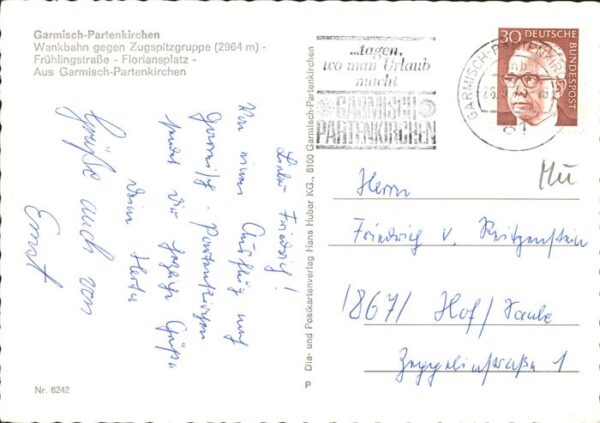 Garmisch-Partenkirchen
Wankbahn gegen Zugspitzgruppe (2964 m) -
Frühlingstraße - Floriansplatz -
Aus Garmisch-Partenkirchen
Lieber Friedrich!
Von einem Ausflug nach
Garmisch-Partenkirchen
sendet Dir herzliche Grüße
Deine Herta
Grüße auch von
Ernst
Nr. 8242
Dia- und Postkartenverlag Hans Huber KG., 8100 Garmisch-Partenkirchen
P
...tagen,
wo man Urlaub
macht
GARMISCH
PARTENKIRCHEN
30 DEUTSCHE
BUNDESPOST
GARMISCH-PARTENKIRCHEN
Herrn
Friedrich v. Reitzenstein
867/ Hof/Saale
Zeppelinstraße 1